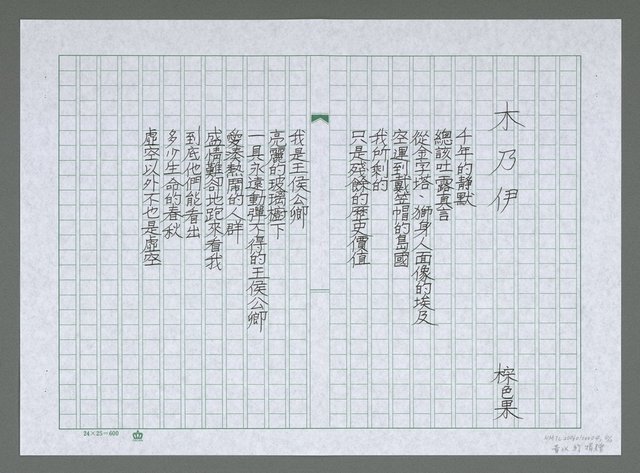 木乃伊
棕色果
千年的靜默
總該吐露真言
從金字塔、獅身人面像的埃及
空運到戴笠帽的島國
我所剩的
只是殘餘的歷史價值
我是王侯公卿
亮麗的玻璃櫃下
一具永遠動彈不得的王侯公卿
愛湊熱鬧的人群
盛情難卻地跑來看我
到底他們能看出
多少生命的春秋
虛空以外不也是虛空
24×25=600